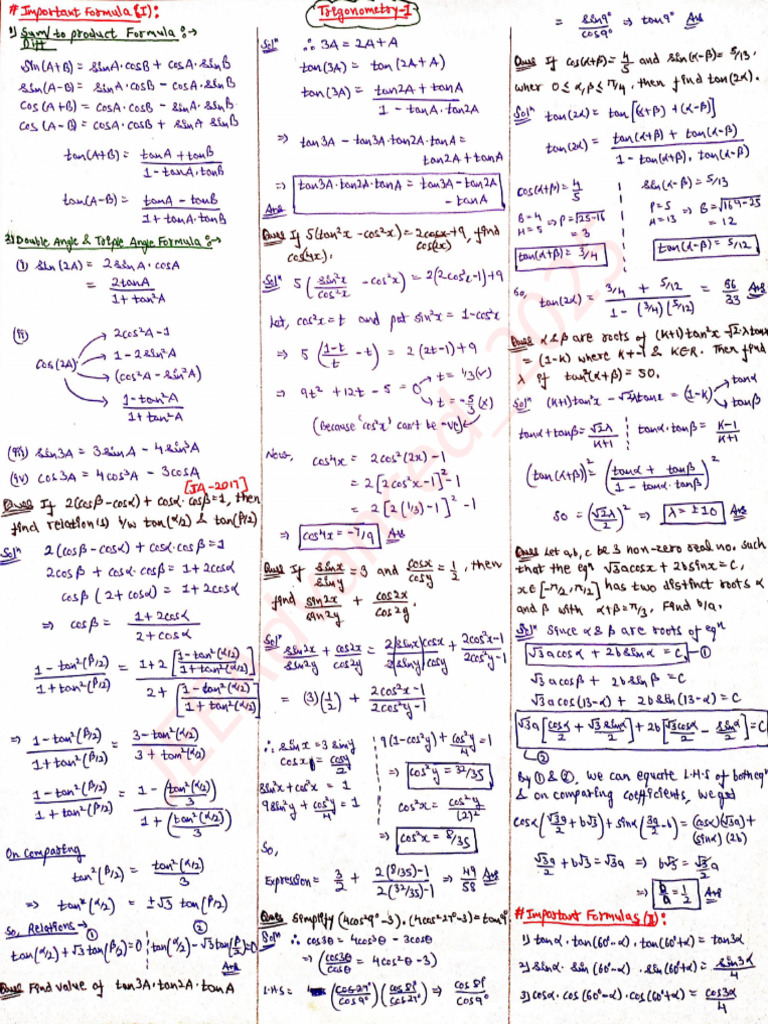 Trigonometry-I
# Important Formula (I):
1) Sum/Diff to product Formula :→
Sin(A+B) = sinA·cosB + cosA·sinB
Sin(A-B) = sinA·cosB - cosA·sinB
Cos(A+B) = cosA·cosB - sinA·sinB
Cos(A-B) = cosA·cosB + sinA·sinB
tan(A+B) = (tanA + tanB) / (1 - tanA·tanB)
tan(A-B) = (tanA - tanB) / (1 + tanA·tanB)
2) Double Angle & Triple Angle Formula :→
(i) Sin(2A) = 2sinA·cosA
= 2tanA / (1 + tan²A)
(ii) Cos(2A) → 2cos²A-1
→ 1-2sin²A
→ (cos²A - sin²A)
→ (1-tan²A) / (1+tan²A)
(iii) Sin3A = 3sinA - 4sin³A
(iv) Cos3A = 4cos³A - 3cosA
[JA-2017]
Ques If 2(cosβ-cosα) + cosα·cosβ=1, then
find relation(s) b/w tan(α/2) & tan(β/2)
Solⁿ 2(cosβ-cosα) + cosα·cosβ=1
2cosβ + cosα·cosβ = 1+2cosα
cosβ(2+cosα) = 1+2cosα
⇒ cosβ = (1+2cosα) / (2+cosα)
(1-tan²(β/2)) / (1+tan²(β/2)) = (1+2[(1-tan²(α/2)) / (1+tan²(α/2))]) / (2+[(1-tan²(α/2)) / (1+tan²(α/2))])
⇒ (1-tan²(β/2)) / (1+tan²(β/2)) = (3-tan²(α/2)) / (3+tan²(α/2))
(1-tan²(β/2)) / (1+tan²(β/2)) = (1-(tan²(α/2)/3)) / (1+(tan²(α/2)/3))
On Comparing
tan²(β/2) = tan²(α/2) / 3
⇒ tan²(α/2) = ±√3 tan(β/2)
So, Relations→
① tan(α/2)+√3 tan(β/2)=0 ② tan(α/2)-√3 tan(β/2)=0
Ans
Ques Find value of tan3A·tan2A·tanA
Solⁿ ∴ 3A = 2A+A
tan(3A) = tan(2A+A)
tan(3A) = (tan2A + tanA) / (1 - tanA·tan2A)
⇒ tan3A - tan3A·tan2A·tanA =
tan2A + tanA
⇒ tan3A·tan2A·tanA = tan3A - tan2A
- tanA
Ans
Ques If 5(tan²x - cos²x) = 2cos2x+9, find
cos(4x).
cos(2x)
Solⁿ 5(sin²x/cos²x - cos²x) = 2(2cos²x-1)+9
Let, cos²x=t and put sin²x = 1-cos²x
⇒ 5((1-t)/t - t) = 2(2t-1)+9
⇒ 9t²+12t-5=0 → t=1/3(✓)
→ t=-5/3(x)
(Because 'cos²x' can't be -ve)
Now, cos4x = 2cos²(2x)-1
= 2[2cos²x-1]²-1
= 2[2(1/3)-1]²-1
⇒ cos4x = -7/9 Ans
Ques If sinx/siny = 3 and cosx/cosy = 1/2, then
find sin2x/sin2y + cos2x/cos2y.
Solⁿ sin2x/sin2y + cos2x/cos2y = 2sinxcosx/2sinycosy + (2cos²x-1)/(2cos²y-1)
= (3)(1/2) + (2cos²x-1)/(2cos²y-1)
∴ sinx=3siny
cosx = cosy/2
sin²x+cos²x = 1
9sin²y + cos²y/4 = 1
9(1-cos²y)+cos²y/4=1
⇒ cos²y=32/35
cos²x = cos²y/(2)²
⇒ cos²x = 8/35
So,
Expression = 3/2 + (2(8/35)-1)/(2(32/35)-1) ⇒ 49/58 Ans
Ques Simplify (4cos²9°-3)·(4cos²27°-3)=tan9°
Solⁿ ∴ cos3θ = 4cos³θ - 3cosθ
⇒ (cos3θ/cosθ = 4cos²θ-3)
L.H.S = (cos27°/cos9°)(cos81°/cos27°) ⇒ cos81°/cos9°
= sin9°/cos9° ⇒ tan9° Ans
Ques If cos(α+β)=4/5 and sin(α-β)=5/13,
wher 0≤α,β≤π/4, then find tan(2α).
Solⁿ tan(2α) = tan[(α+β)+(α-β)]
tan(2α) = (tan(α+β) + tan(α-β)) / (1 - tan(α+β)·tan(α-β))
cos(α+β)=4/5
B=4
H=5 ⇒ P=√25-16
= 3
tan(α+β)= 3/4
sin(α-β)=5/13
P=5
H=13 ⇒ B=√169-25
= 12
tan(α-β)=5/12
So, tan(2α) = (3/4 + 5/12) / (1-(3/4)(5/12)) = 56/33 Ans
Ques α&β are roots of (K+1)tan²x-√2·λtanx
=(1-K) where K≠-1 & K∈R. Then find
λ if tan²(α+β)=50.
Solⁿ (K+1)tan²x-√2λtanx=(1-K) → tanα
→ tanβ
tanα+tanβ=√2λ/(K+1) tanα·tanβ=(K-1)/(K+1)
(tan(α+β))² = ((tanα + tanβ)/(1-tanα·tanβ))²
50=(√2λ/2)² ⇒ λ=±10 Ans
Ques Let a,b,c be 3 non-zero real no. such
that the eqⁿ √3acosx+2bsinx=C,
x∈[-π/2,π/2] has two distinct roots α
and β with α+β=π/3. Find b/a.
Solⁿ Since α & β are roots of eqⁿ
√3acosα + 2bsinα = C -①
√3acosβ + 2bsinβ = C
√3acos(π/3-α) + 2bsin(π/3-α)=C
√3a[cosα/2 + √3sinα/2]+2b[√3cosα/2 - sinα/2]=C
②
By ① & ②, we can equate L.H.S of both eqⁿ
& on comparing coefficients, we get
cosα(√3a/2+b√3)+sinα(3a/2-b)=(cosα)(√3a)+
(sinα)(2b)
√3a/2+b√3=√3a ⇒ b√3=√3a/2
⇒ b/a=1/2 Ans
# Important Formulas (II):
1) tanα·tan(60°-α)·tan(60°+α)=tan3α
2) sinα·sin(60°-α)·sin(60°+α)=sin3α/4
3) cosα·cos(60°-α)·cos(60°+α)=cos3α/4
JEEAdvanced_2025